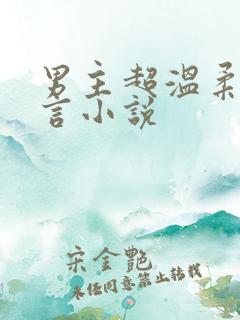 男主超温柔
言小说
宋金艷
未经同意禁止转载